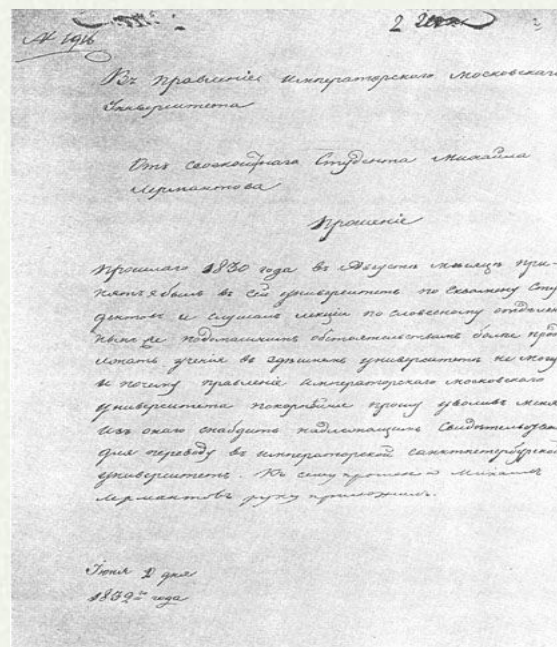 № 1916
2
Въ Правленіе Императорскаго Московскаго
Университета
Отъ своекоштнаго Студента Михаила
Лермантова
Прошеніе
Прошлаго 1830 года въ Августѣ мѣсяцѣ при-
нятъ я былъ въ сей университетъ по экзамену сту
дентомъ и слушалъ лекціи по словесному отдѣлен
нынѣ же по домашнимъ обстоятельствамъ болѣе про
должать ученія въ здѣшнемъ университетѣ не могу
и потому правленіе императорскаго московскаго
университета покорнѣйше прошу уволивъ меня
изъ онаго снабдить надлежащимъ свидѣтельством
для переводу въ императорской санктпетербургской
университетъ. Къ сему прошенію Михаилъ
Лермантовъ руку приложилъ.
Іюня дня
1832го года